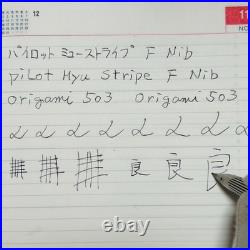 12
11
NO
パイロット ミューストライプ F Nib
PiLot Myu Stripe F Nib
origami 503 origami 503
良 良 良